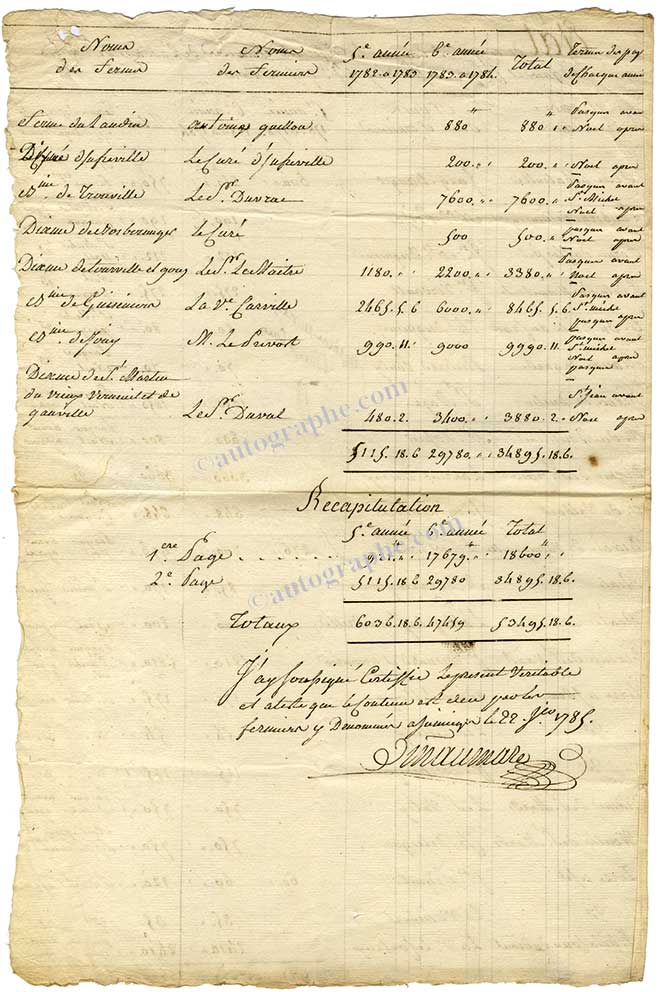 Noms des Fermes Noms des Fermiers 5.e année 1782 a 1783 6.e année 1783 a 1784 Total Termes de chaque année
Ferme du Landin antoine quillou 880 " 880 " " Pasques avant Noel apres
d'Infreville Le Curé d'Infreville 200 " " 200 " " Noel apres
D.ime de Trouville Le S.r Duvrac 7600 " " 7600 " " Pasques avant S.t Michel Noel apres
Dixme de le Curé 500 500 " " pasques avant Noel apres
Dixme de tourville et Le S.r Le Maitre 1180 " " 2200 " " 3380 " " Pasques avant Noel apres
D.ime de La V.e Carville 2465. 5. 6 6000 " " 8465. 5. 6. Pasques avant S.t Michel pasques apres
D.ime de Jouy M. Le Prevost 990. 11. " 9000 9990. 11. " Pasques avant S.t Michel Noel apres pasques
Dixme de S.t Martin
du vieux Verneuil et de S.t Jean avant
gauville Le S.r Duval 480. 2. 3400. " " 3880. 2. " Noel apres
5115. 18. 6 29780. " " 34895. 18. 6.
©autographe.com
Recapitulation
5.e année 6.e année Total
1.ere Page . . . . . . 17679 " 18600 " "
2.e Page 5115. 18. 6 29780 34895. 18. 6.
©autographe.com
Totaux 6036. 18. 6. 47459 53495. 18. 6.
J'ay soussigné Certiffie le present Veritable
et ateste que le Contenu est deu par les
fermiers y Denommés a Jumieges le 22 1785.